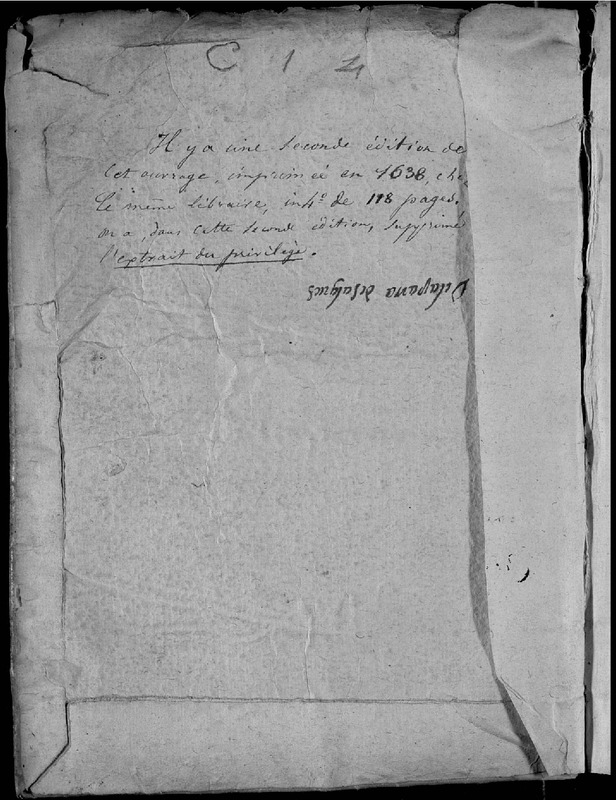 C 1 4
Il y a une seconde édition de
cet ouvrage, imprimée en 1638, chez
le même libraire, in 4º de 118 pages.
on a, dans cette seconde édition, supprimé
l'extrait du privilège.